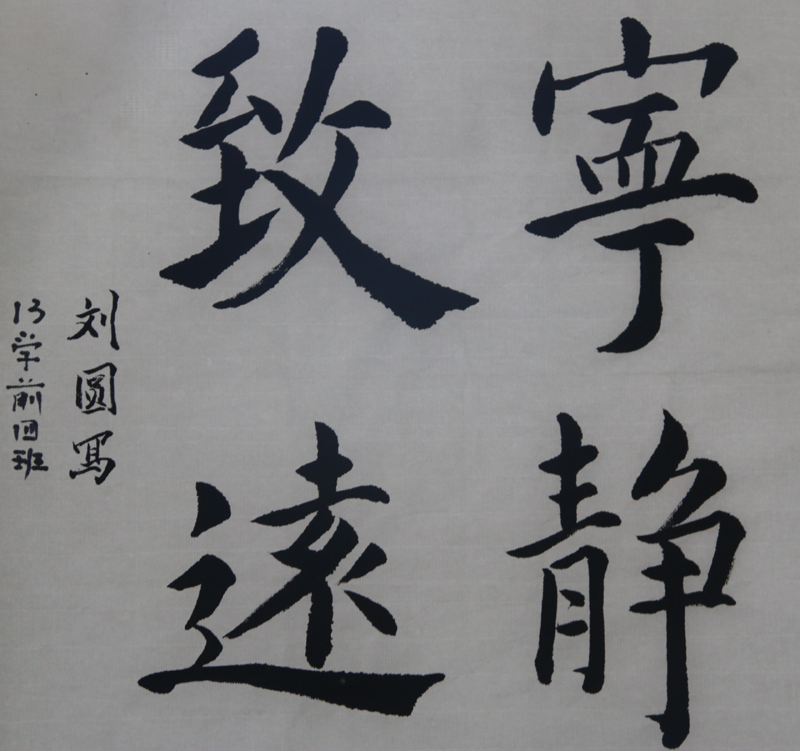 寧静
致遠
刘圆写
13学前四班